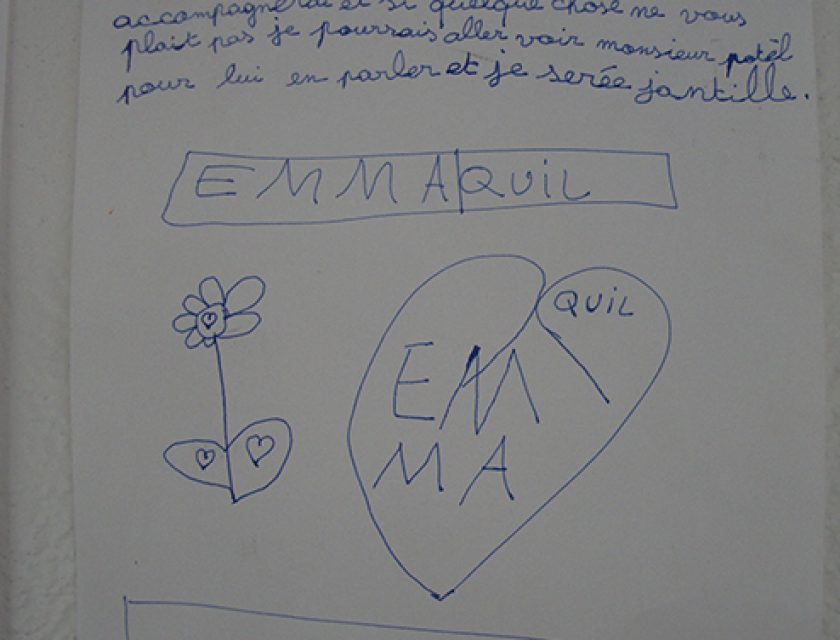 et si quelque chose ne vous
plait pas je pourrais aller voir monsieur potel
pour lui en parler et je serée jantille.
EMMA QUiL
QUiL
EM
MA